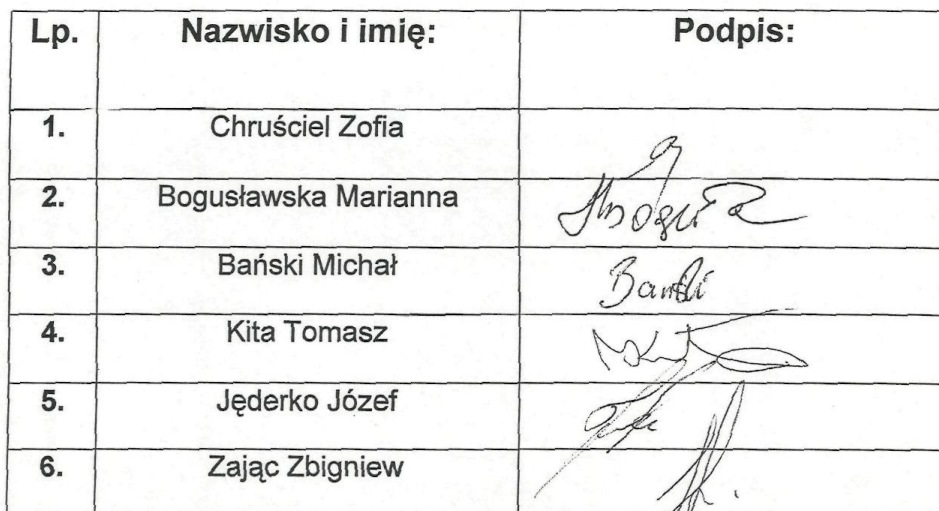 Lp. Nazwisko i imię: Podpis:
1. Chruściel Zofia
2. Bogusławska Marianna
3. Bański Michał Bański
4. Kita Tomasz
5. Jęderko Józef
6. Zając Zbigniew